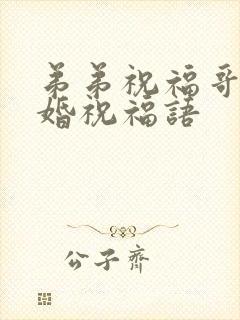 弟弟祝福哥
婚祝福語
公子齊